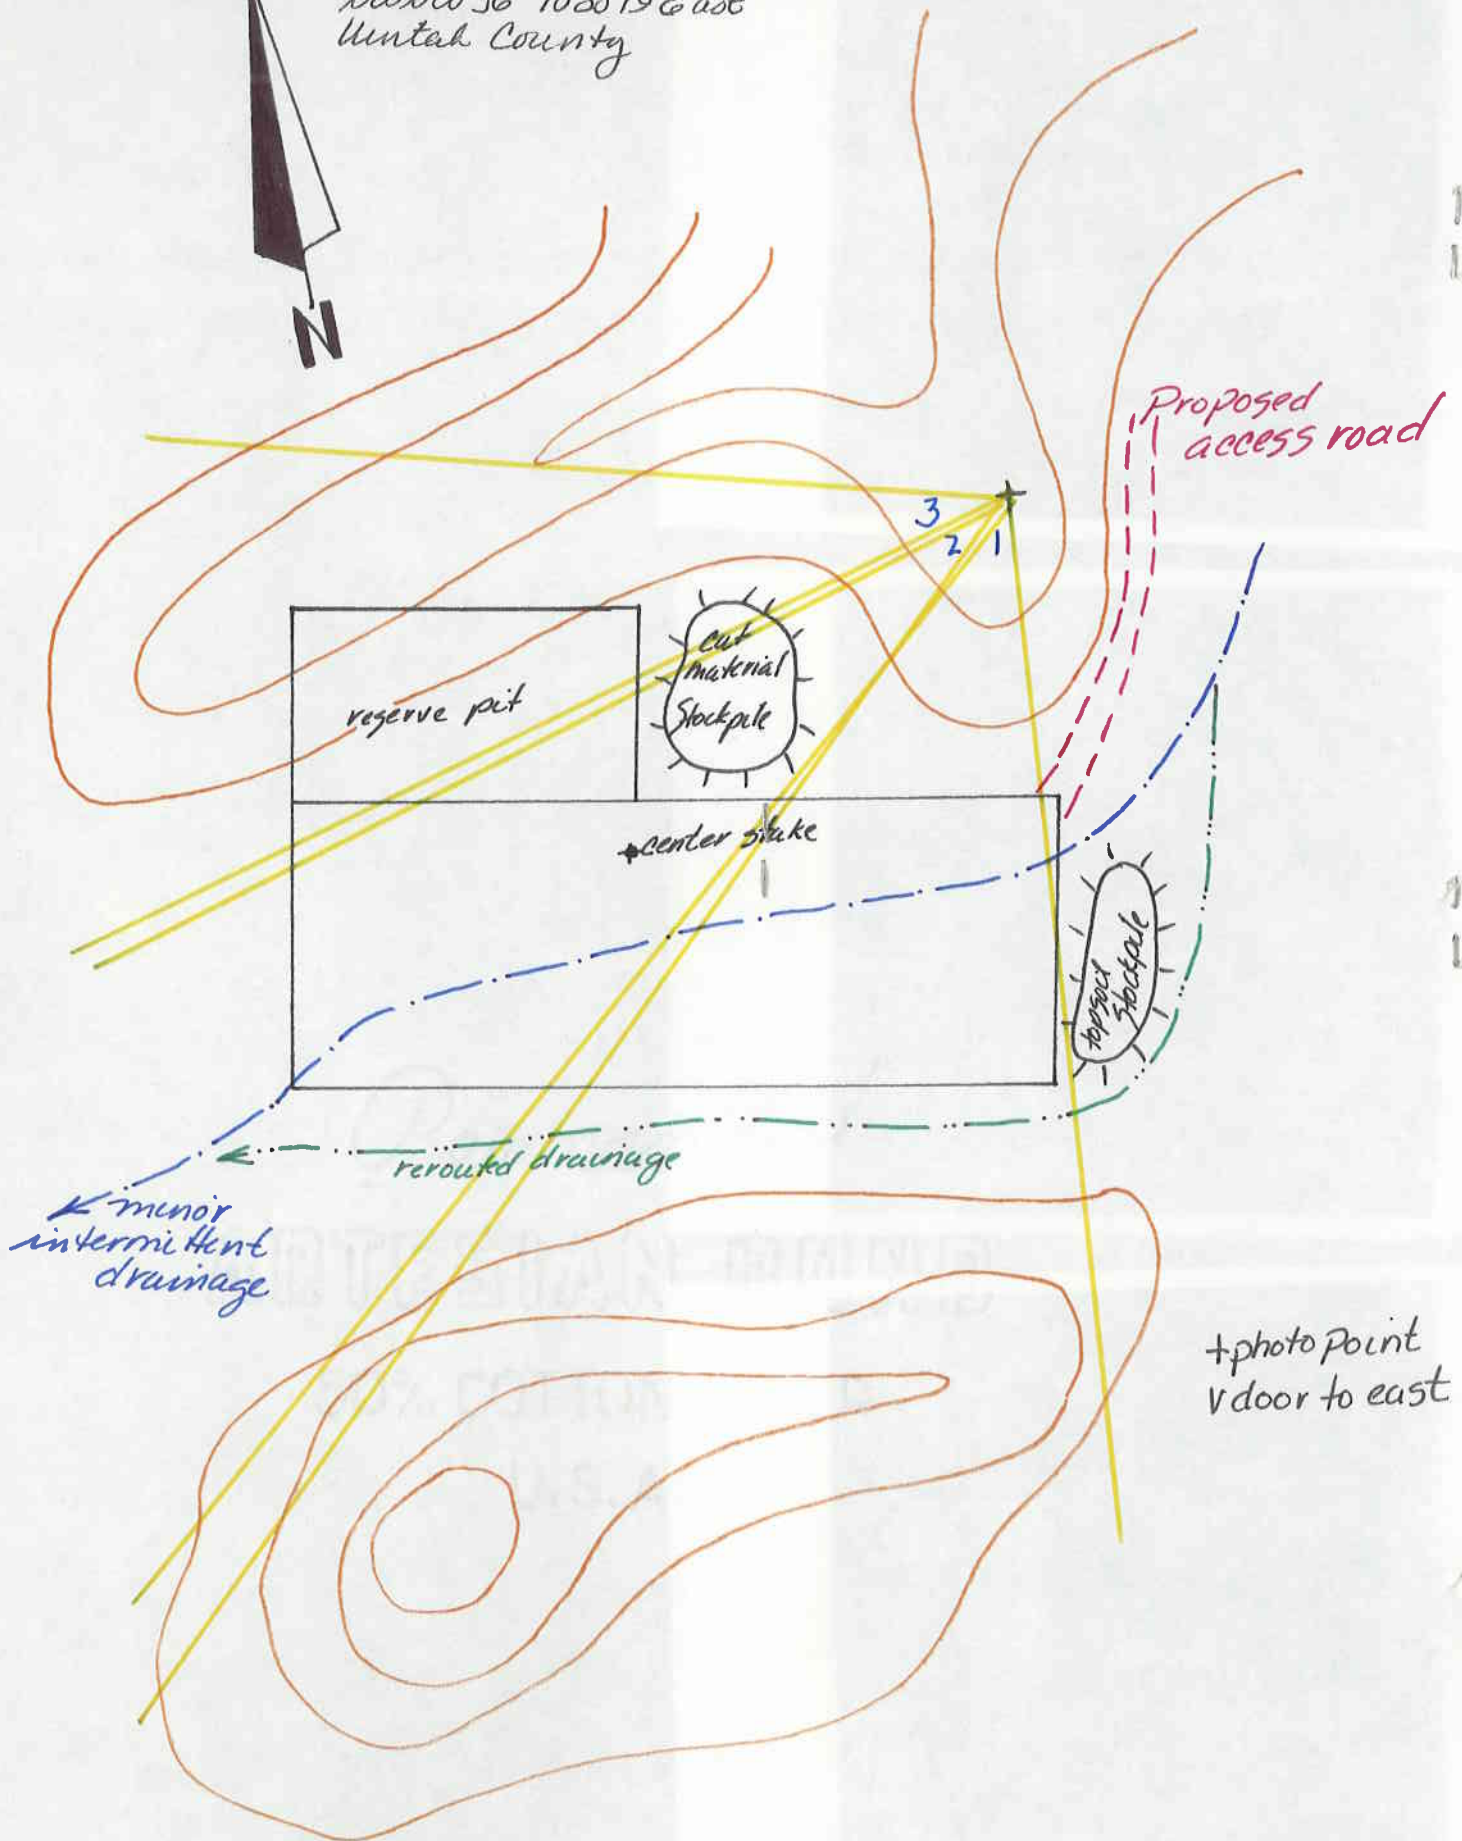 Uintah County
N
Proposed
access road
3
2
1
cut
material
Stockpile
reserve pit
center stake
topsoil
Stockpile
rerouted drainage
minor
intermittent
drainage
+photo point
V door to east